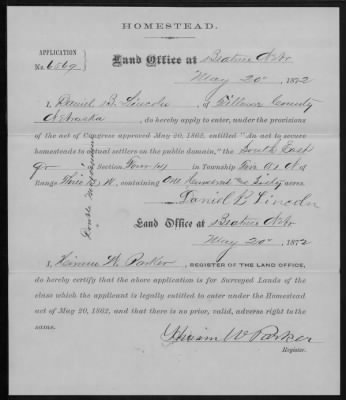 HOMESTEAD.
APPLICATION
No. 6569
Land Office at Beatrice Nebr
May 20th, 1872
I, Daniel B. Lincoln, of Fillmore County
Nebraska, do hereby apply to enter, under the provisions
of the act of Congress approved May 20, 1862, entitled "An act to secure
homesteads to actual settlers on the public domain," the South East
qr Section Four (4) in Township Five (5) N of
Range Three (3) W, containing One Hundred and Sixty acres.
Double Minimum
Daniel B Lincoln
Land Office at Beatrice Nebr
May 20th, 1872
I, Hiram W. Parker, REGISTER OF THE LAND OFFICE,
do hereby certify that the above application is for Surveyed Lands of the
class which the applicant is legally entitled to enter under the Homestead
act of May 20, 1862, and that there is no prior, valid, adverse right to the
same.
Hiram W Parker
Register.